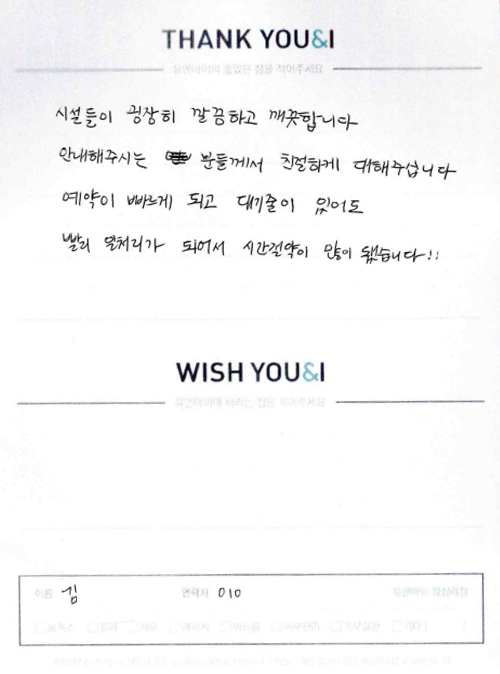 THANK YOU&I
유앤아이의 좋았던 점을 적어주세요
시설들이 굉장히 깔끔하고 깨끗합니다
안내해주시는 분들께서 친절하게 대해주십니다
예약이 빠르게 되고 대기줄이 있어도
빨리 일처리가 되어서 시간절약이 많이 됐습니다!!
WISH YOU&I
유앤아이에 바라는 점을 적어주세요
이름 김 연락처 010 유앤아이 관심리스트
보톡스 필러 제모 레이저 리프팅